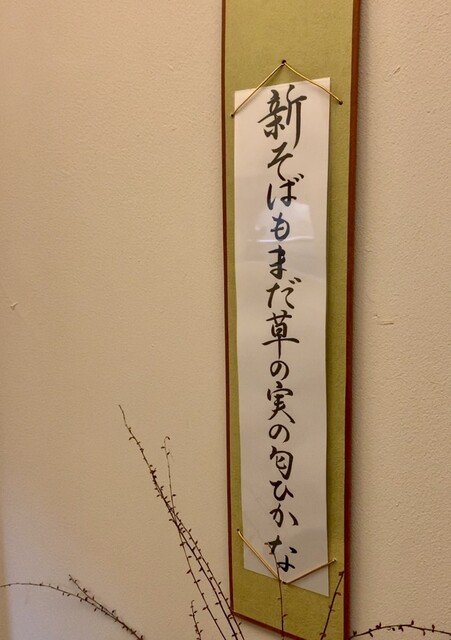 新そばもまだ草の実の匂ひかな